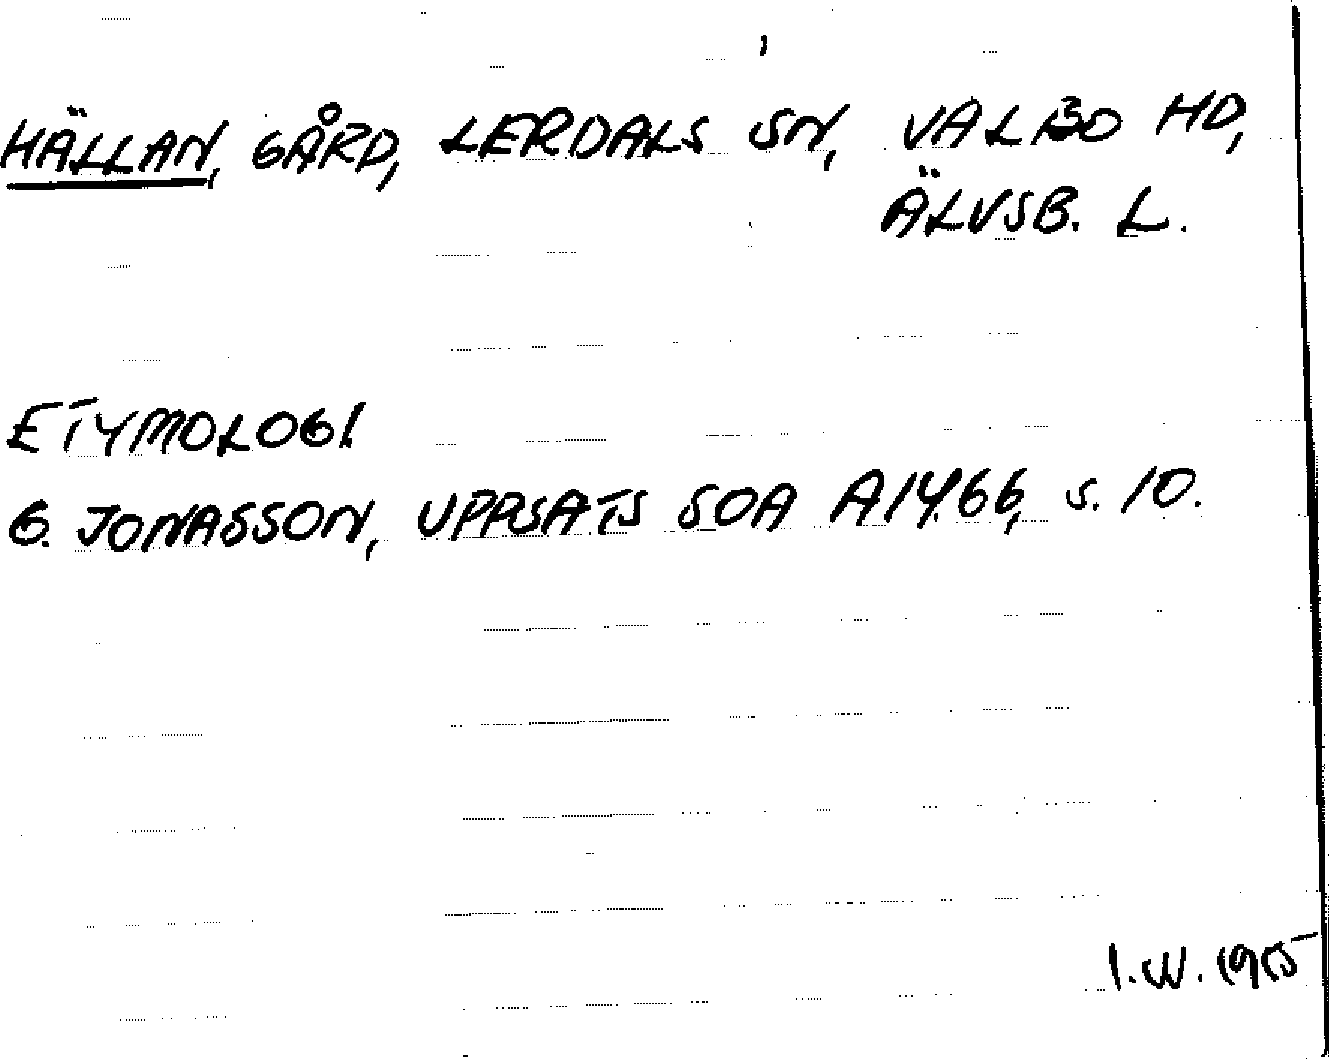 HÄLLAN, GÅRD, LERDALS SN, VALBO HD,
ÄLVSB. L.
ETYMOLOGI
G. JONASSON, UPPSATS SOA A1466, S. 10.
I.W.